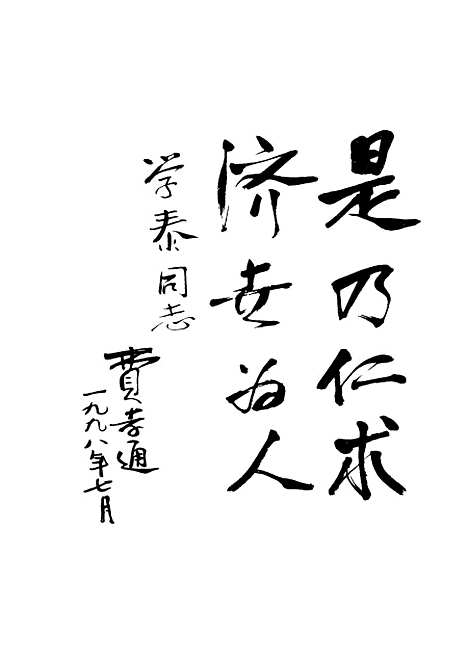 是乃仁求
济世为人
学泰同志
费孝通
一九九八年七月